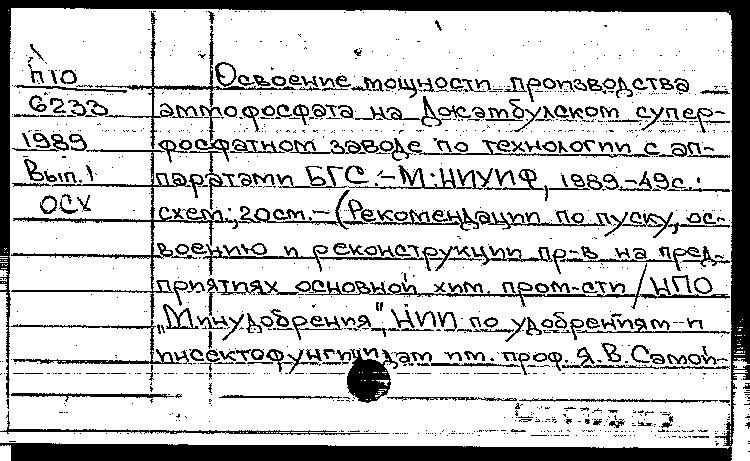 П10
6233
1989
Вып.1
ОСХ
Освоение мощности производства
аммофосфата на Джамбулском супер-
фосфатном заводе по технологии с ап-
паратами БГС.-М:НИУИФ, 1989.-49с.:
схем.;20см.-(Рекомендации по пуску, ос-
воению и реконструкции пр-в на пред-
приятиях основной хим. пром-сти / НПО
"Минудобрения", НИИ по удобрениям и
инсектофунгицидам им. проф. Я.В. Самой-